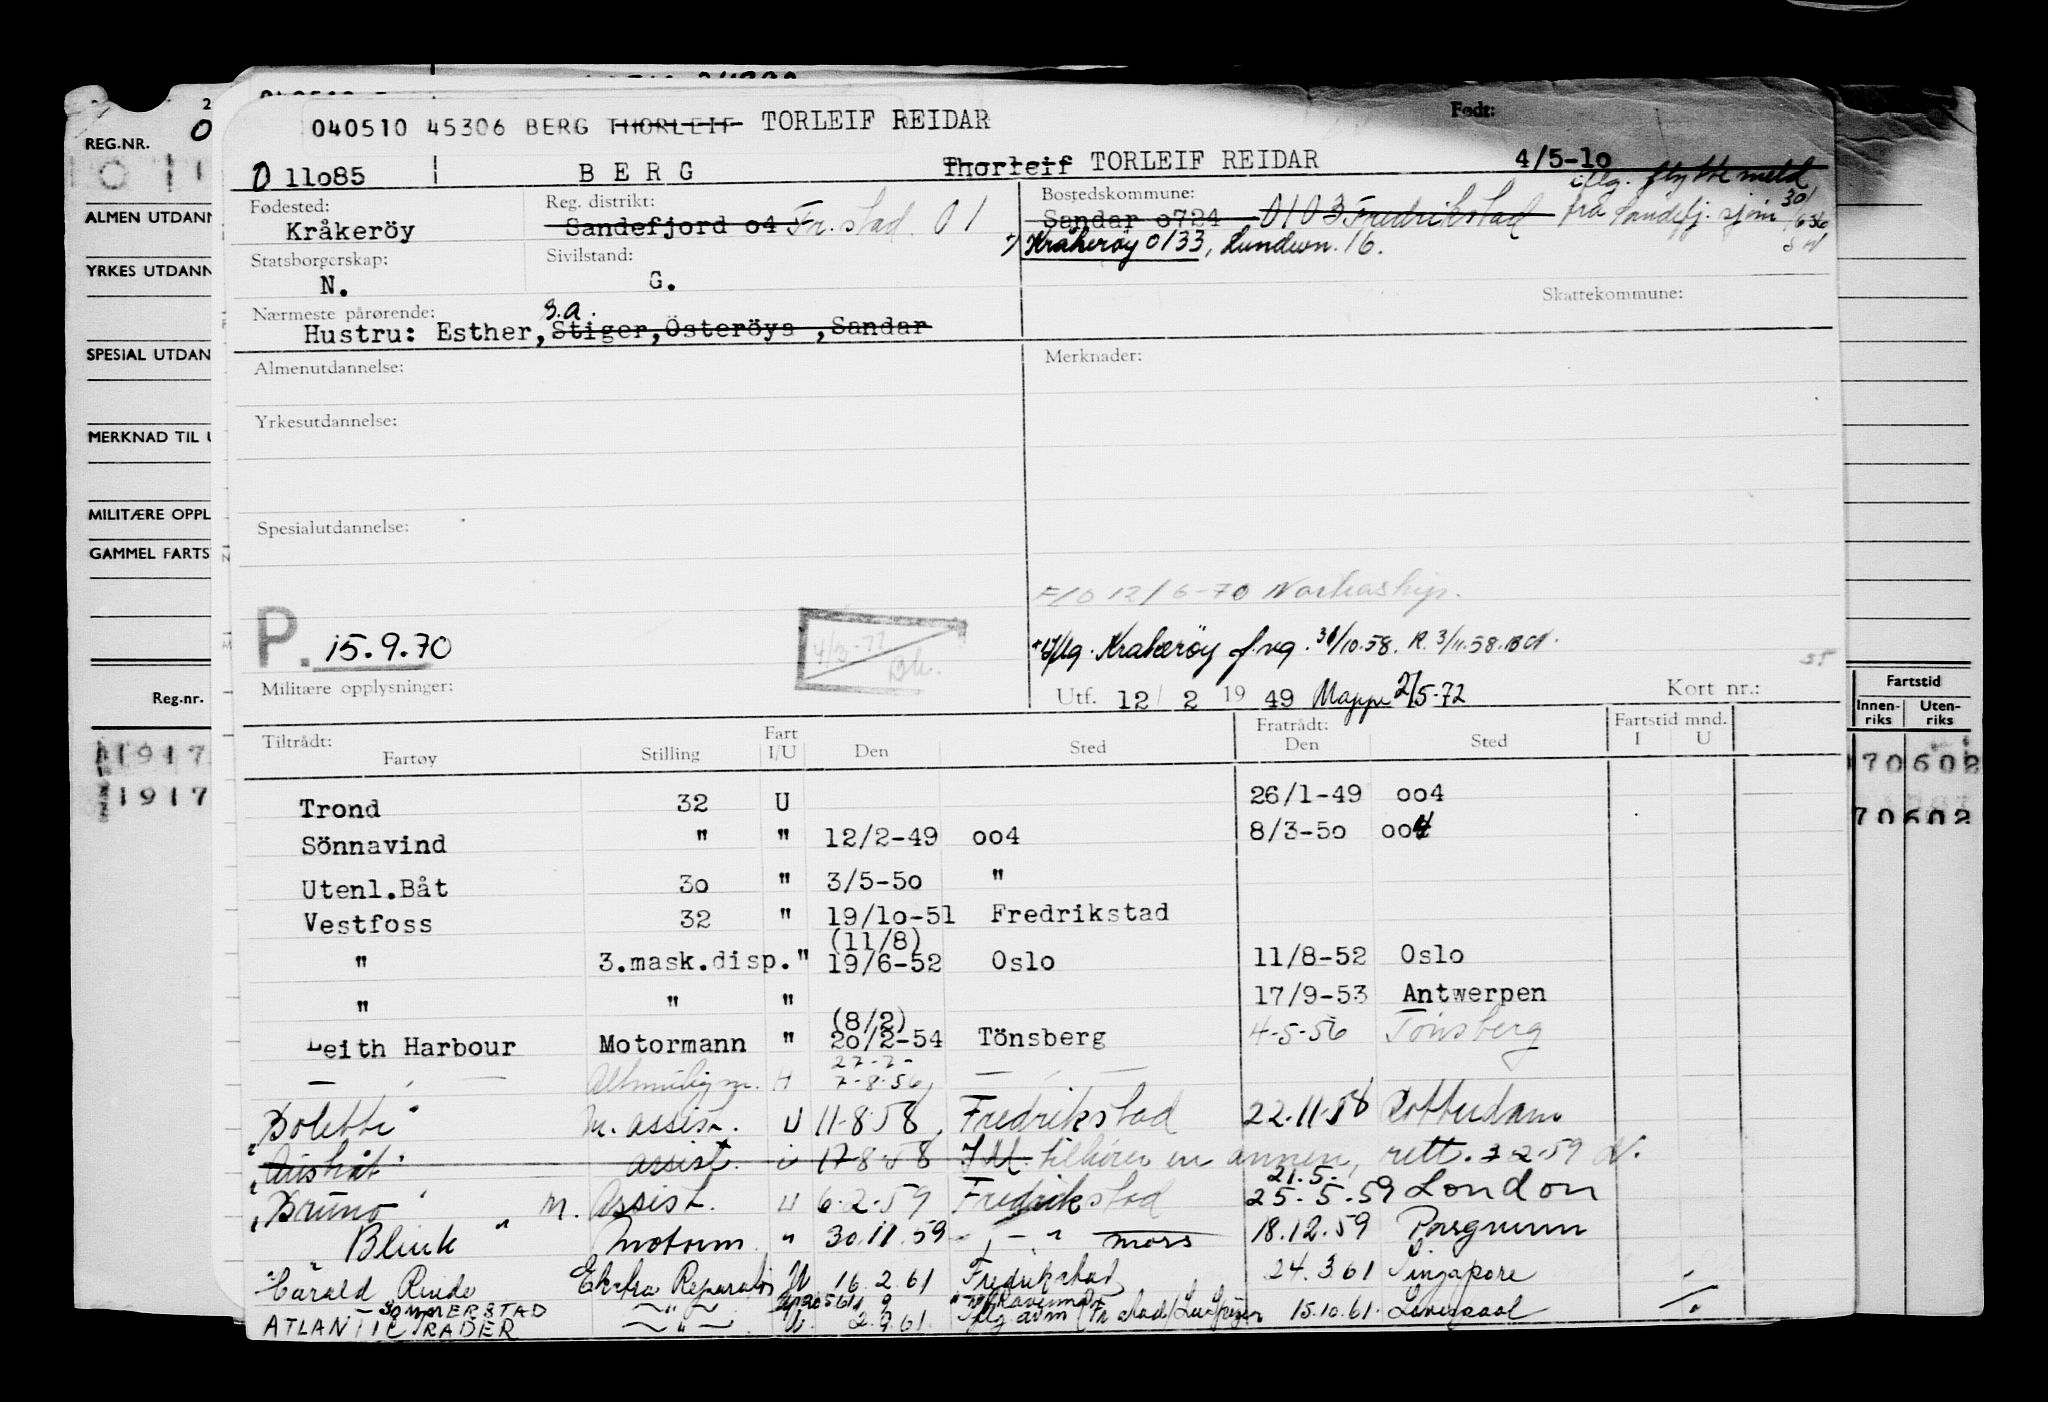 040510 45306 BERG THORLEIF TORLEIF REIDAR
Født:
REG.NR. 0
O 11o85 B E R G Thorleif TORLEIF REIDAR 4/5-1o
Fødested: Reg. distrikt: Bostedskommune: iflg. flyttemeld
Kråkeröy Sandefjord o4 Fr.stad. 01 Sandar o724 0103 Fredrikstad fra Sandefj. sjøm 30/6 56
Kråkerøy 0133, Lundevn. 16.
Statsborgerskap: Sivilstand:
N. G.
Skattekommune:
Nærmeste pårørende: s.a.
Hustru: Esther, Stiger, Österöys , Sandar
Almenutdannelse: Merknader:
Yrkesutdannelse:
Spesialutdannelse:
F/O 12/6-70 Norkaship.
P. 15.9.70 4/3-77
Iflg. Kråkerøy f.vg. 31/10.58. R. 3/11.58.
Militære opplysninger: Utf. 12/ 2 19 49 Mappe 2/5-72 Kort nr.:
ALMEN UTDANN
YRKES UTDANN
SPESIAL UTDAN
MERKNAD TIL U
MILITÆRE OPPL
GAMMEL FARTS
Reg.nr.
11917
11917
Fartstid
Innen-riks Uten-riks
70602
70602
Tiltrådt: Fratrådt: Fartstid mnd.
Fartøy Stilling Fart I/U Den Sted Den Sted I U
Trond 32 U 26/1-49 oo4
Sönnavind " " 12/2-49 oo4 8/3-5o oo4
Utenl.Båt 3o " 3/5-5o "
Vestfoss 32 " 19/1o-51 Fredrikstad
(11/8)
" 3.mask.disp." 19/6-52 Oslo 11/8-52 Oslo
" " " 17/9-53 Antwerpen
(8/2)
Leith Harbour Motormann " 2o/2-54 Tönsberg 4-5-56 Tönsberg
27-7-
— , — Altmuligm. H 7-8-56 — , —
"Bolette" M. assist. U 11-8-58, Fredrikstad 22.11.58 Rotterdam
assist. 17-8-58 I.M. tilhører en annen, rett. 3-2-59
21.5.
"Bruno" M. Assist. U 6-2-59 Fredrikstad 25.5.59 London
Blink " Motorm. " 30.11.59 - " - mors 18.12.59 Porsgrunn
"Harald Rinde Ekstra Reparatør U 16.2.61 Fredrikstad 24.3.61 Singapore
— SOMMERSTAD — " —
ATLANTIC TRADER — " — U 2.9.61. 15.10.61. Liverpool